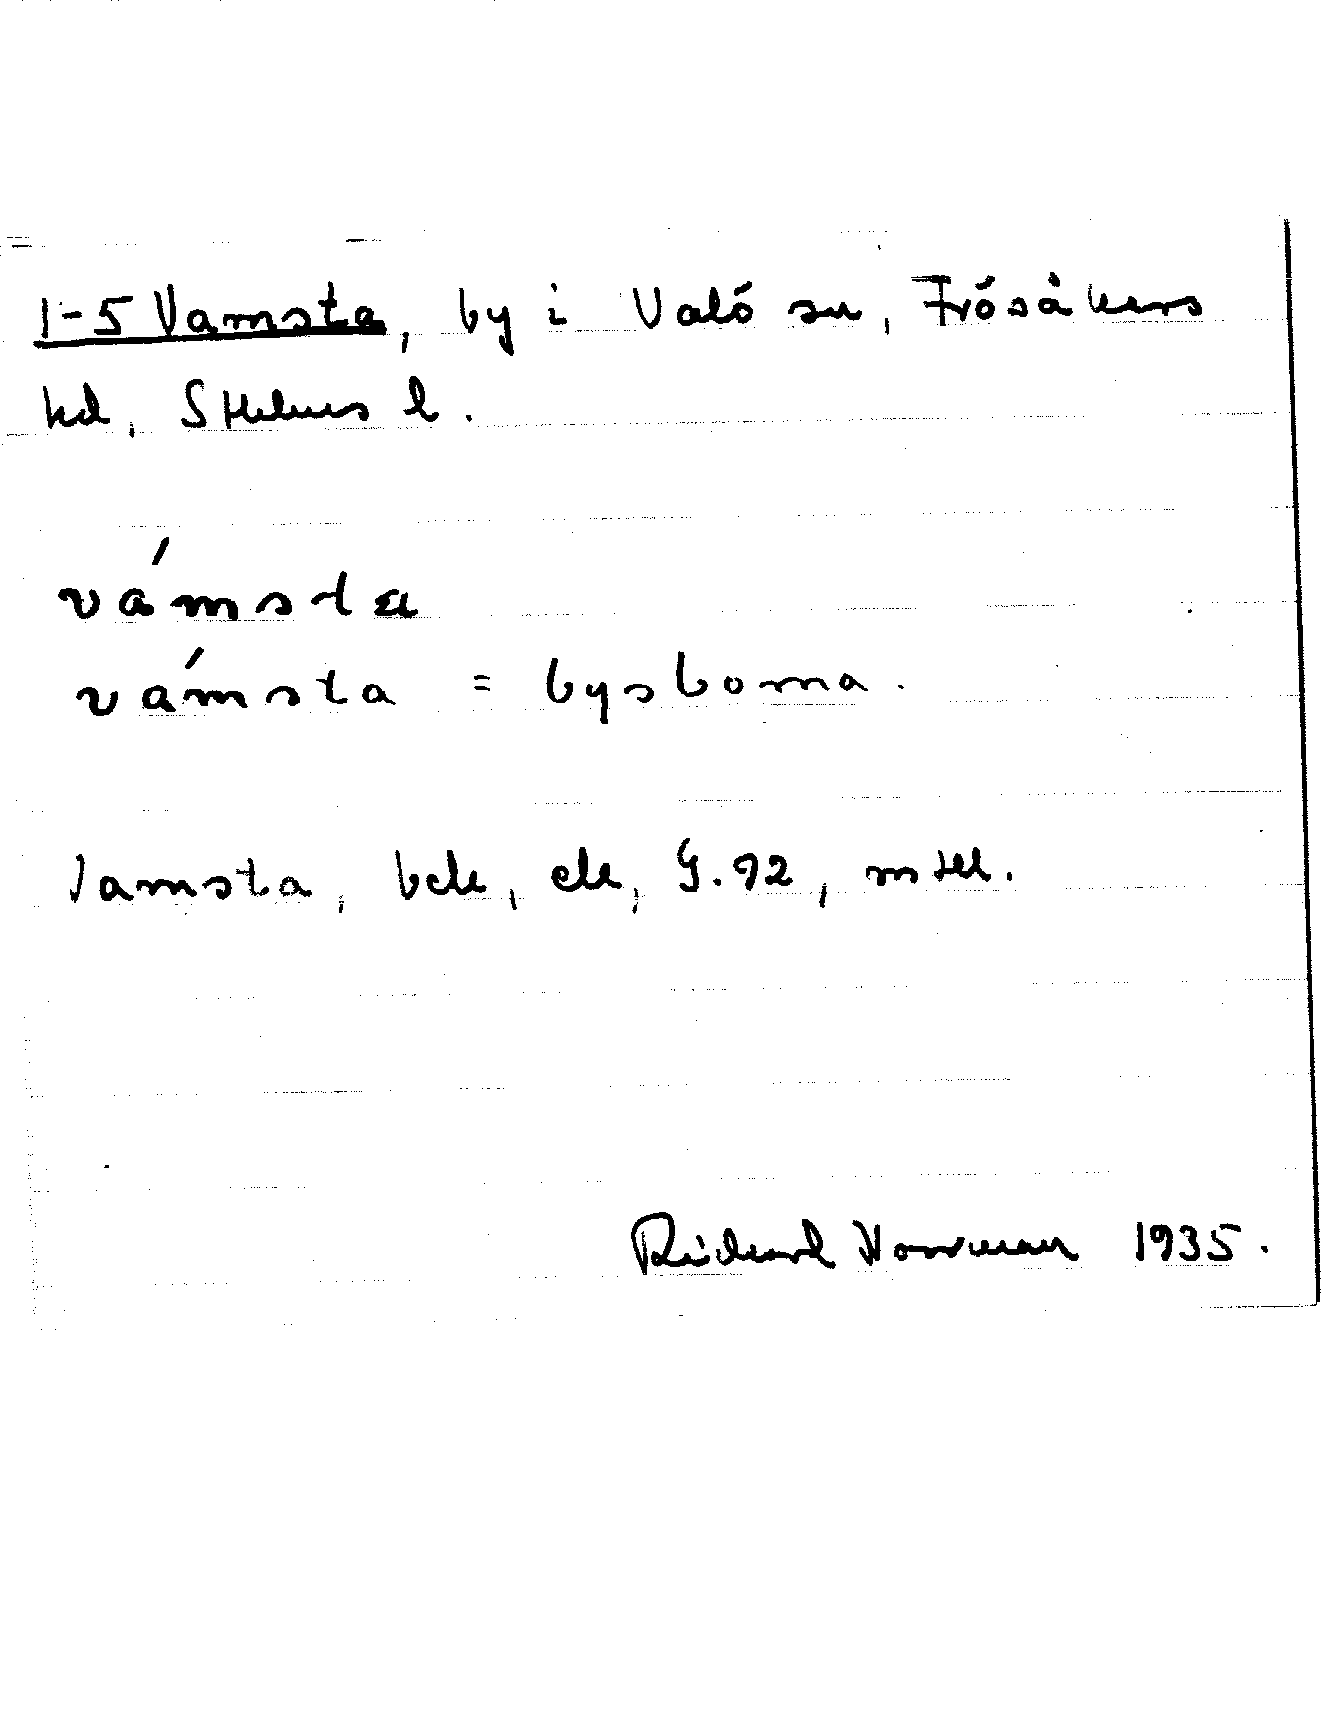 1-5 Vamsta, by i Valö sn, Frösåkers
hd, Sthlms l.
vámsta
vámsta = bysborna.
Vamsta, bek, ek, G.92, mtkl.
Rickard Norrman 1935.